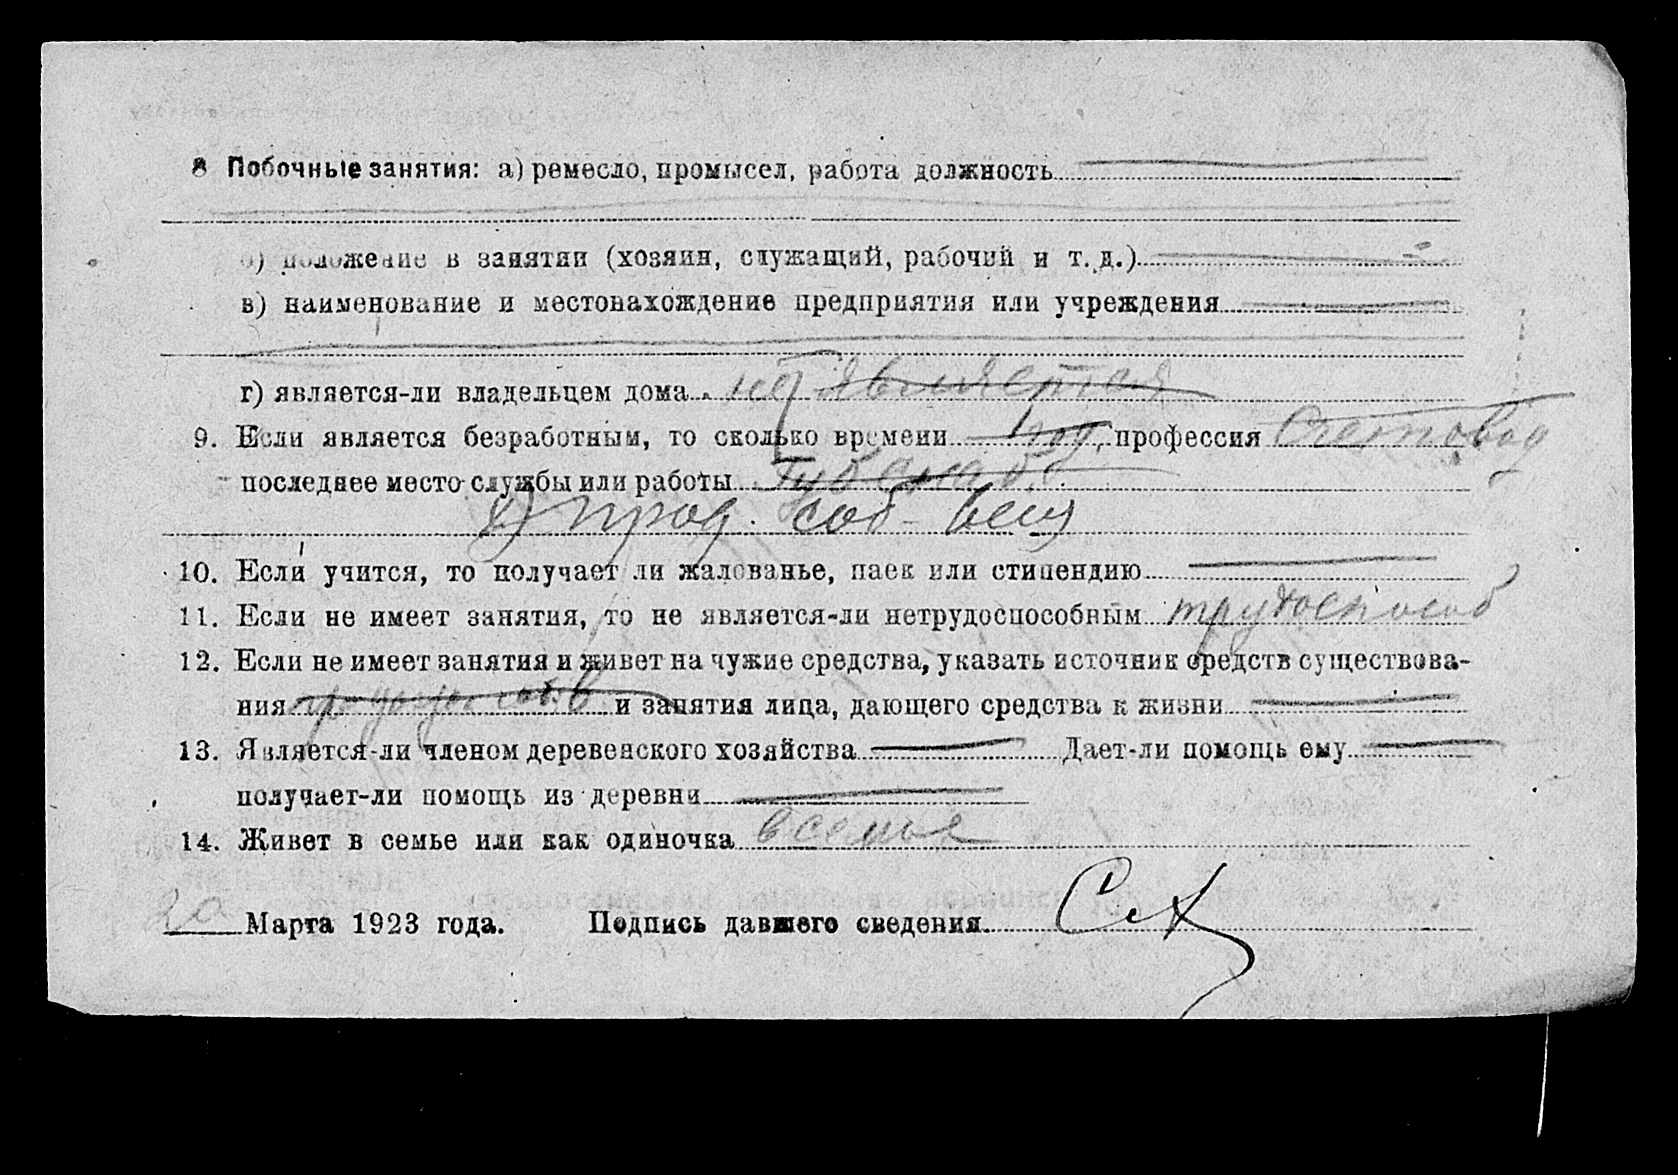 8 Побочные занятия: а) ремесло, промысел, работа должность
б) положение в занятии (хозяин, служащий, рабочий и т. д.)
в) наименование и местонахождение предприятия или учреждения
г) является-ли владельцем дома не является
9. Если является безработным, то сколько времени 1 год, профессия Счетовод
последнее место службы или работы
х) прод. соб. вещ
10. Если учится, то получает ли жалованье, паек или стипендию
11. Если не имеет занятия, то не является-ли нетрудоспособным трудоспособ
12. Если не имеет занятия и живет на чужие средства, указать источник средств существова-
ния и занятия лица, дающего средства к жизни
13. Является-ли членом деревенского хозяйства Дает-ли помощь ему
получает-ли помощь из деревни
14. Живет в семье или как одиночка в семье
20 Марта 1923 года. Подпись давшего сведения